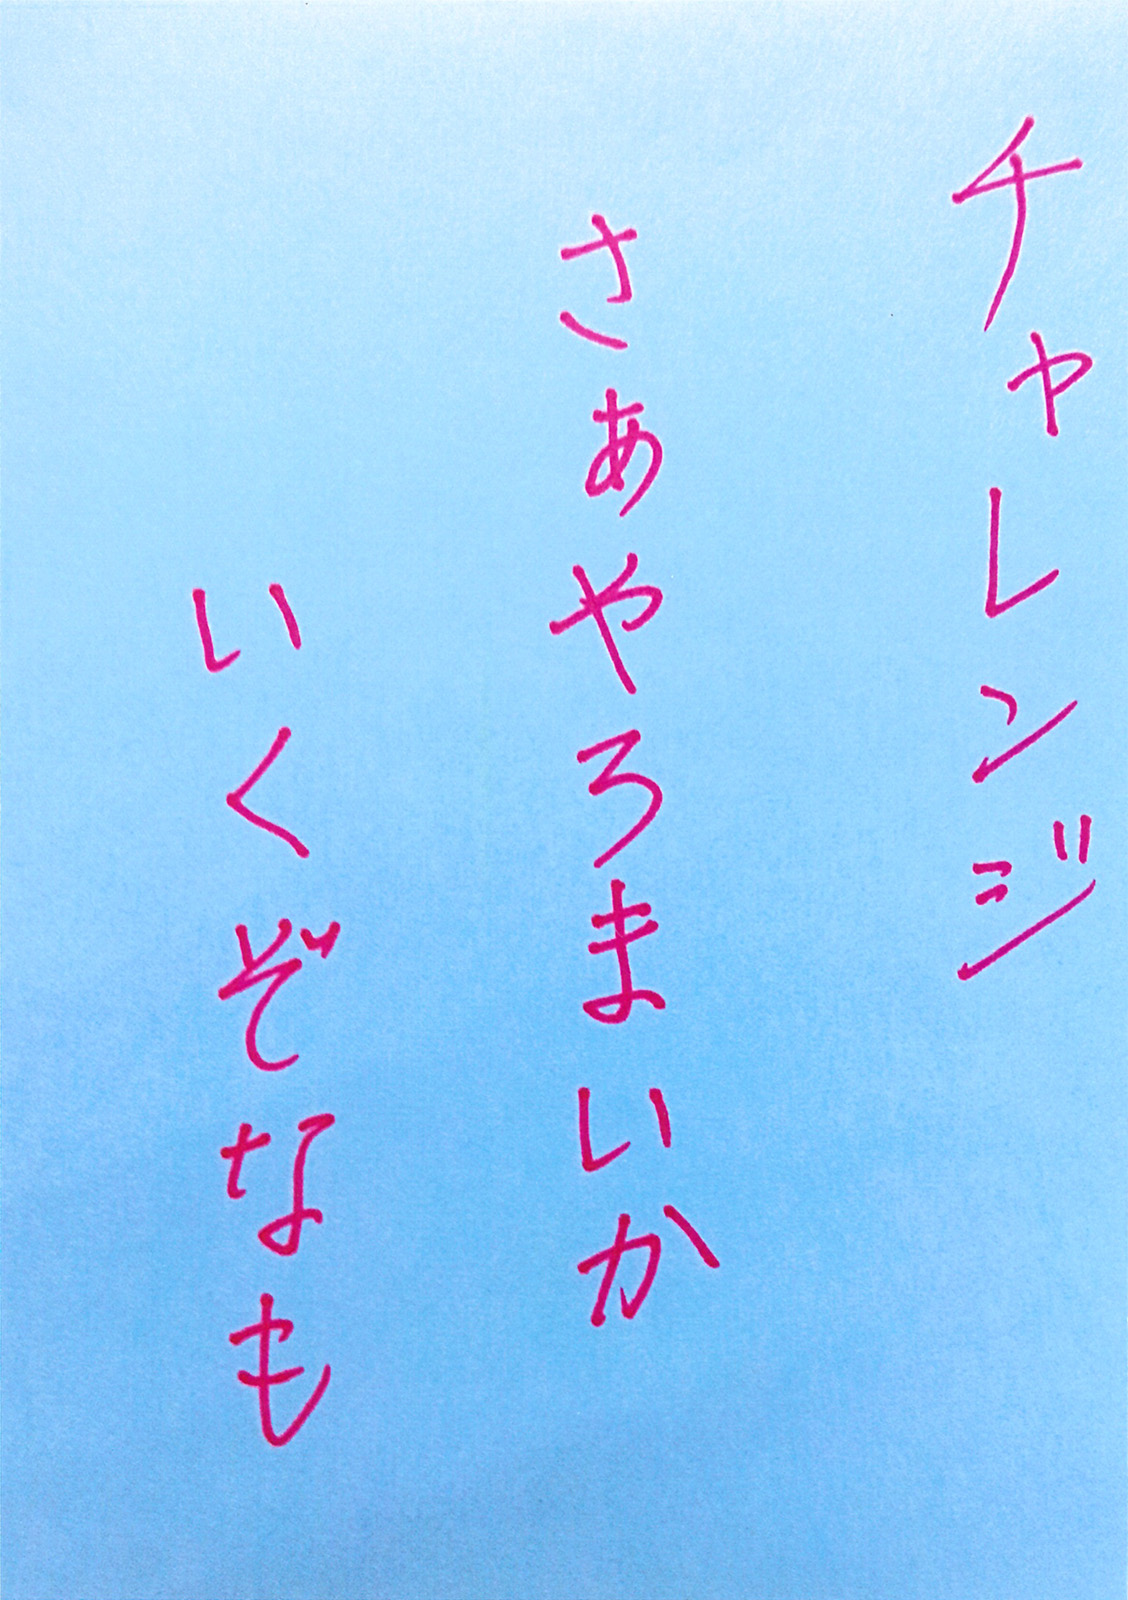 チャレンジ
さぁやろまいか
いくぞなも